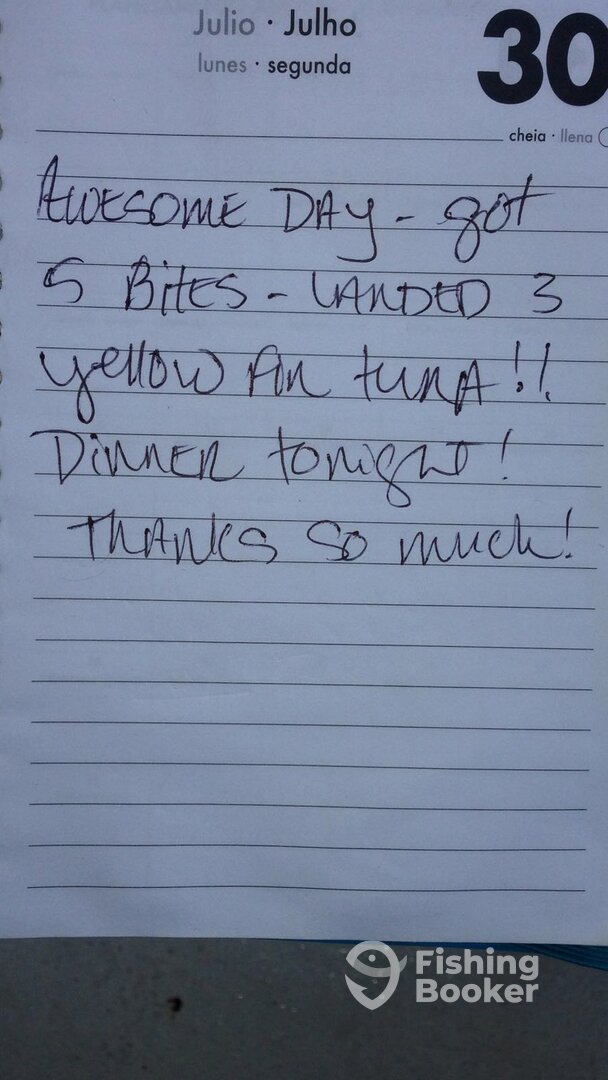 Julio · Julho
30
lunes · segunda
cheia · llena
AWESOME DAY - got
5 BitES - LANDED 3
yellow fin tunA!!
DinnER tonight!
THANKS SO much!
Fishing
Booker